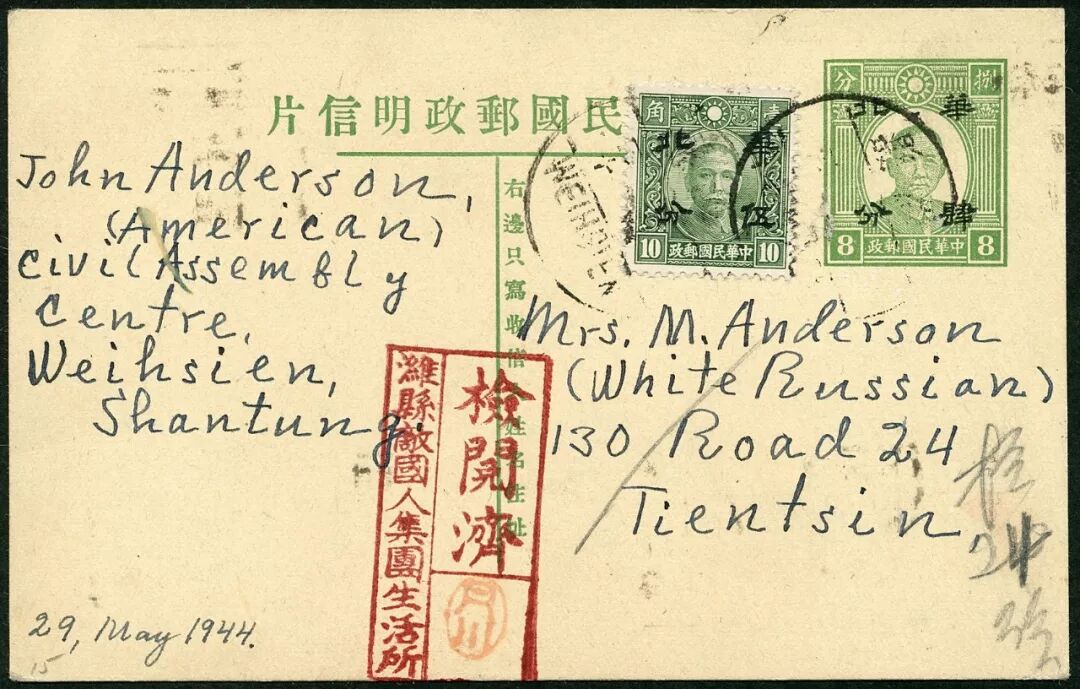 民國郵政明信片
壹角
華北
伍分
10 中華民國郵政 10
捌分
華北
肆分
8 中華民國郵政 8
WEIHSIEN
John Anderson,
(American)
Civil Assembly
Centre,
Weihsien,
Shantung.
右邊只寫收信
姓名住址
Mrs. M. Anderson
(White Russian)
130 Road 24
Tientsin,
檢閲濟
濰縣敵國人集團生活所
29, May 1944.
15